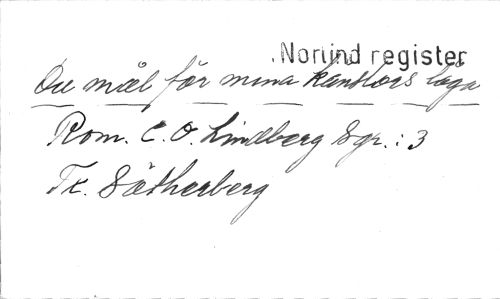 Norlind register
Du mål för mina känslors låga
Rom. C. O. Lindberg Sgr. : 3
Tx. Sätherberg